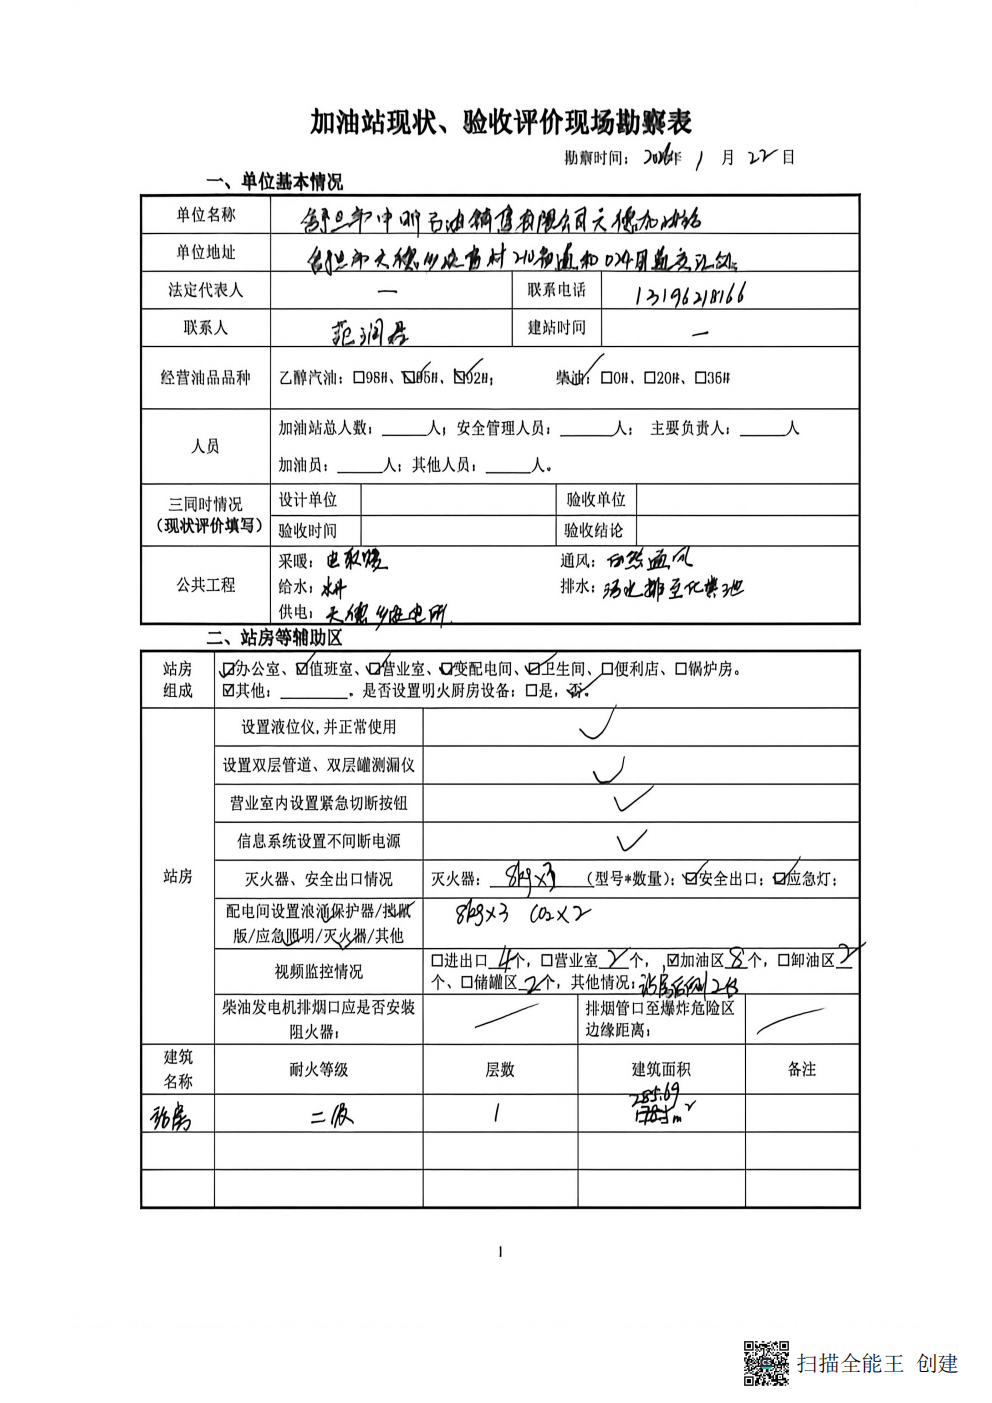 加油站现状、验收评价现场勘察表
勘察时间：2026年 1 月 22 日
一、单位基本情况
单位名称 舒兰市中油石油销售有限公司天德加油站
单位地址 舒兰市天德乡 村 210国道和024县道交汇处
法定代表人 — 联系电话 13196218166
联系人 范润君 建站时间 —
经营油品品种 乙醇汽油：□98#、☑95#、☑92#； 柴油：□0#、□20#、□35#
人员 加油站总人数：______人；安全管理人员：______人； 主要负责人：______人
加油员：______人；其他人员：______人。
三同时情况（现状评价填写） 设计单位 验收单位
验收时间 验收结论
公共工程 采暖：电取暖 通风：自然通风
给水：水井 排水：污水排至化粪池
供电：天德乡变电所
二、站房等辅助区
站房组成 ☑办公室、☑值班室、☑营业室、☑变配电间、☑卫生间、□便利店、□锅炉房。
☑其他：________。是否设置明火厨房设备：□是，否。
站房 设置液位仪,并正常使用 ✓
设置双层管道、双层罐测漏仪 ✓
营业室内设置紧急切断按钮 ✓
信息系统设置不间断电源 ✓
灭火器、安全出口情况 灭火器：8kg×3（型号*数量）；☑安全出口；☑应急灯；
配电间设置浪涌保护器/挡鼠版/应急照明/灭火器/其他 8kg×3 CO2×2
视频监控情况 □进出口 4个，□营业室 2个，☑加油区 8个，□卸油区 2个、□储罐区 2个，其他情况：站房后侧2个
柴油发电机排烟口应是否安装阻火器； 排烟管口至爆炸危险区边缘距离；
建筑名称 耐火等级 层数 建筑面积 备注
站房 二级 1 285.69 m²
1
扫描全能王 创建